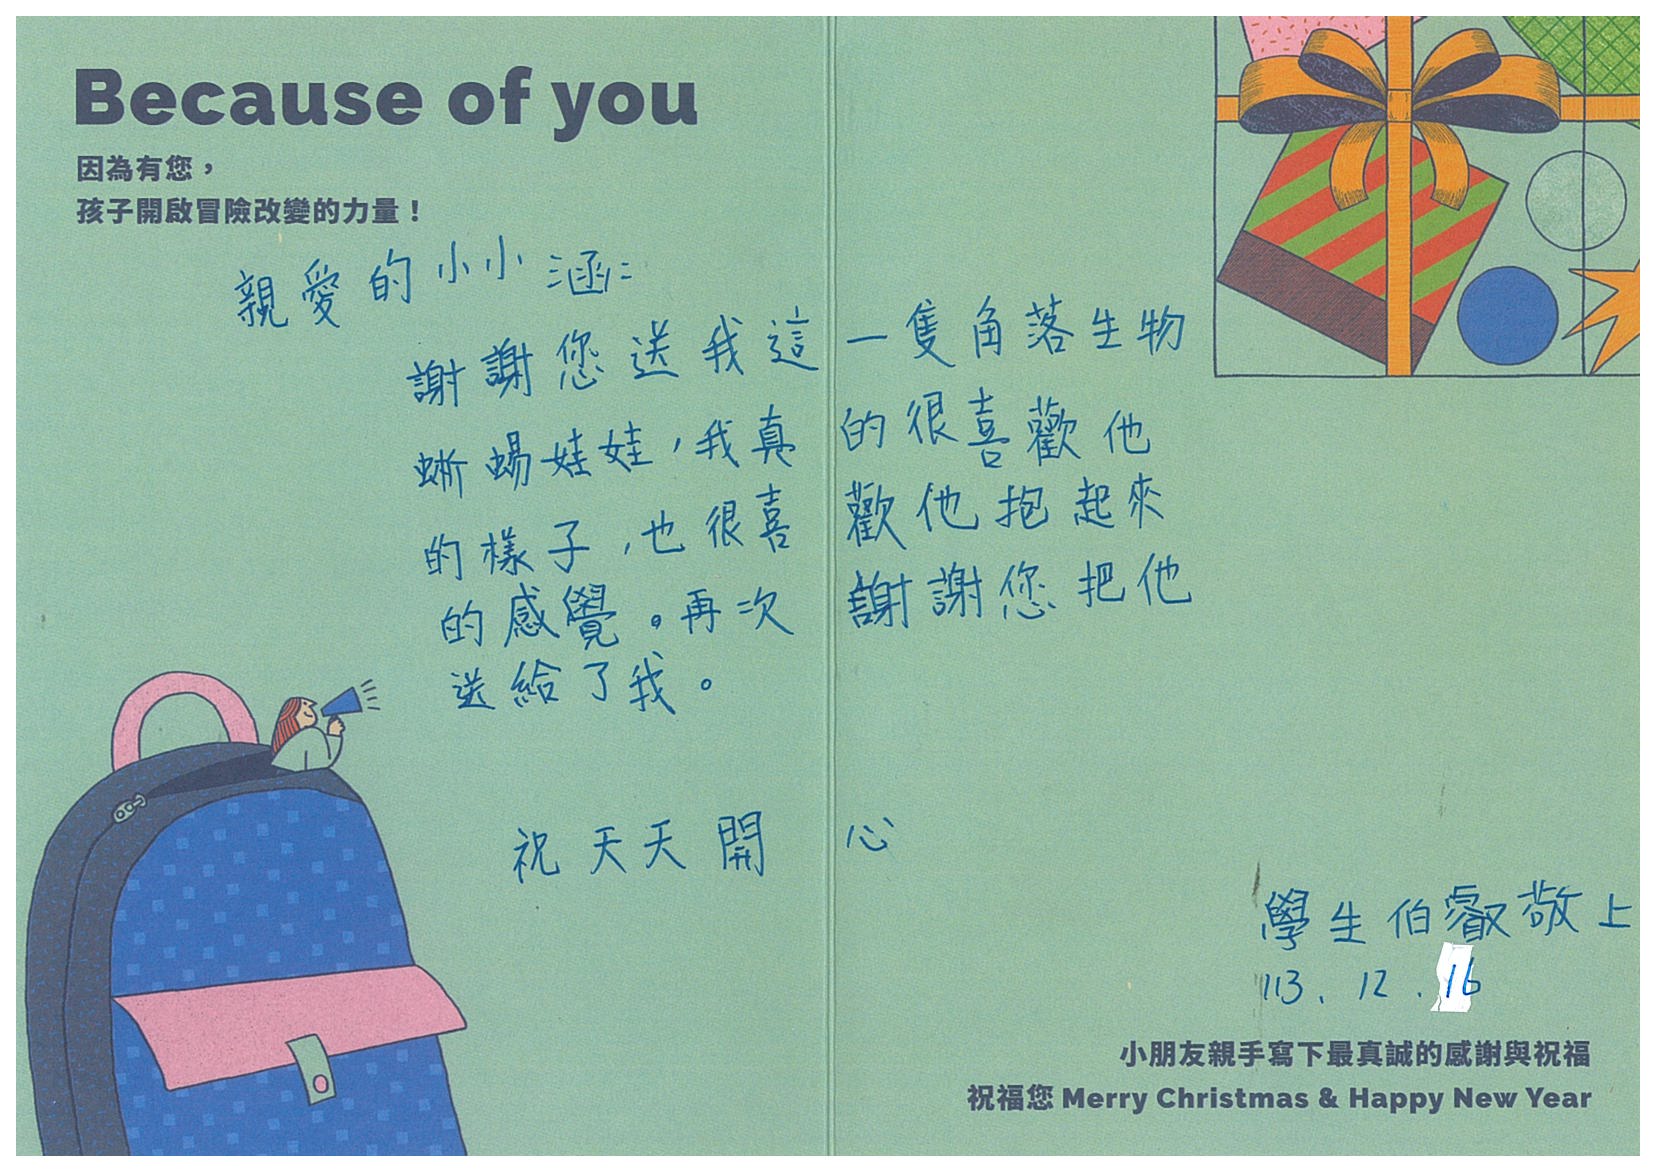 Because of you
因為有您，
孩子開啟冒險改變的力量！
親愛的小小涵：
謝謝您送我這一隻角落生物
蜥蜴娃娃，我真的很喜歡他
的樣子，也很喜歡他抱起來
的感覺。再次謝謝您把他
送給了我。
祝天天開心
學生伯叡敬上
113.12.16
小朋友親手寫下最真誠的感謝與祝福
祝福您 Merry Christmas & Happy New Year